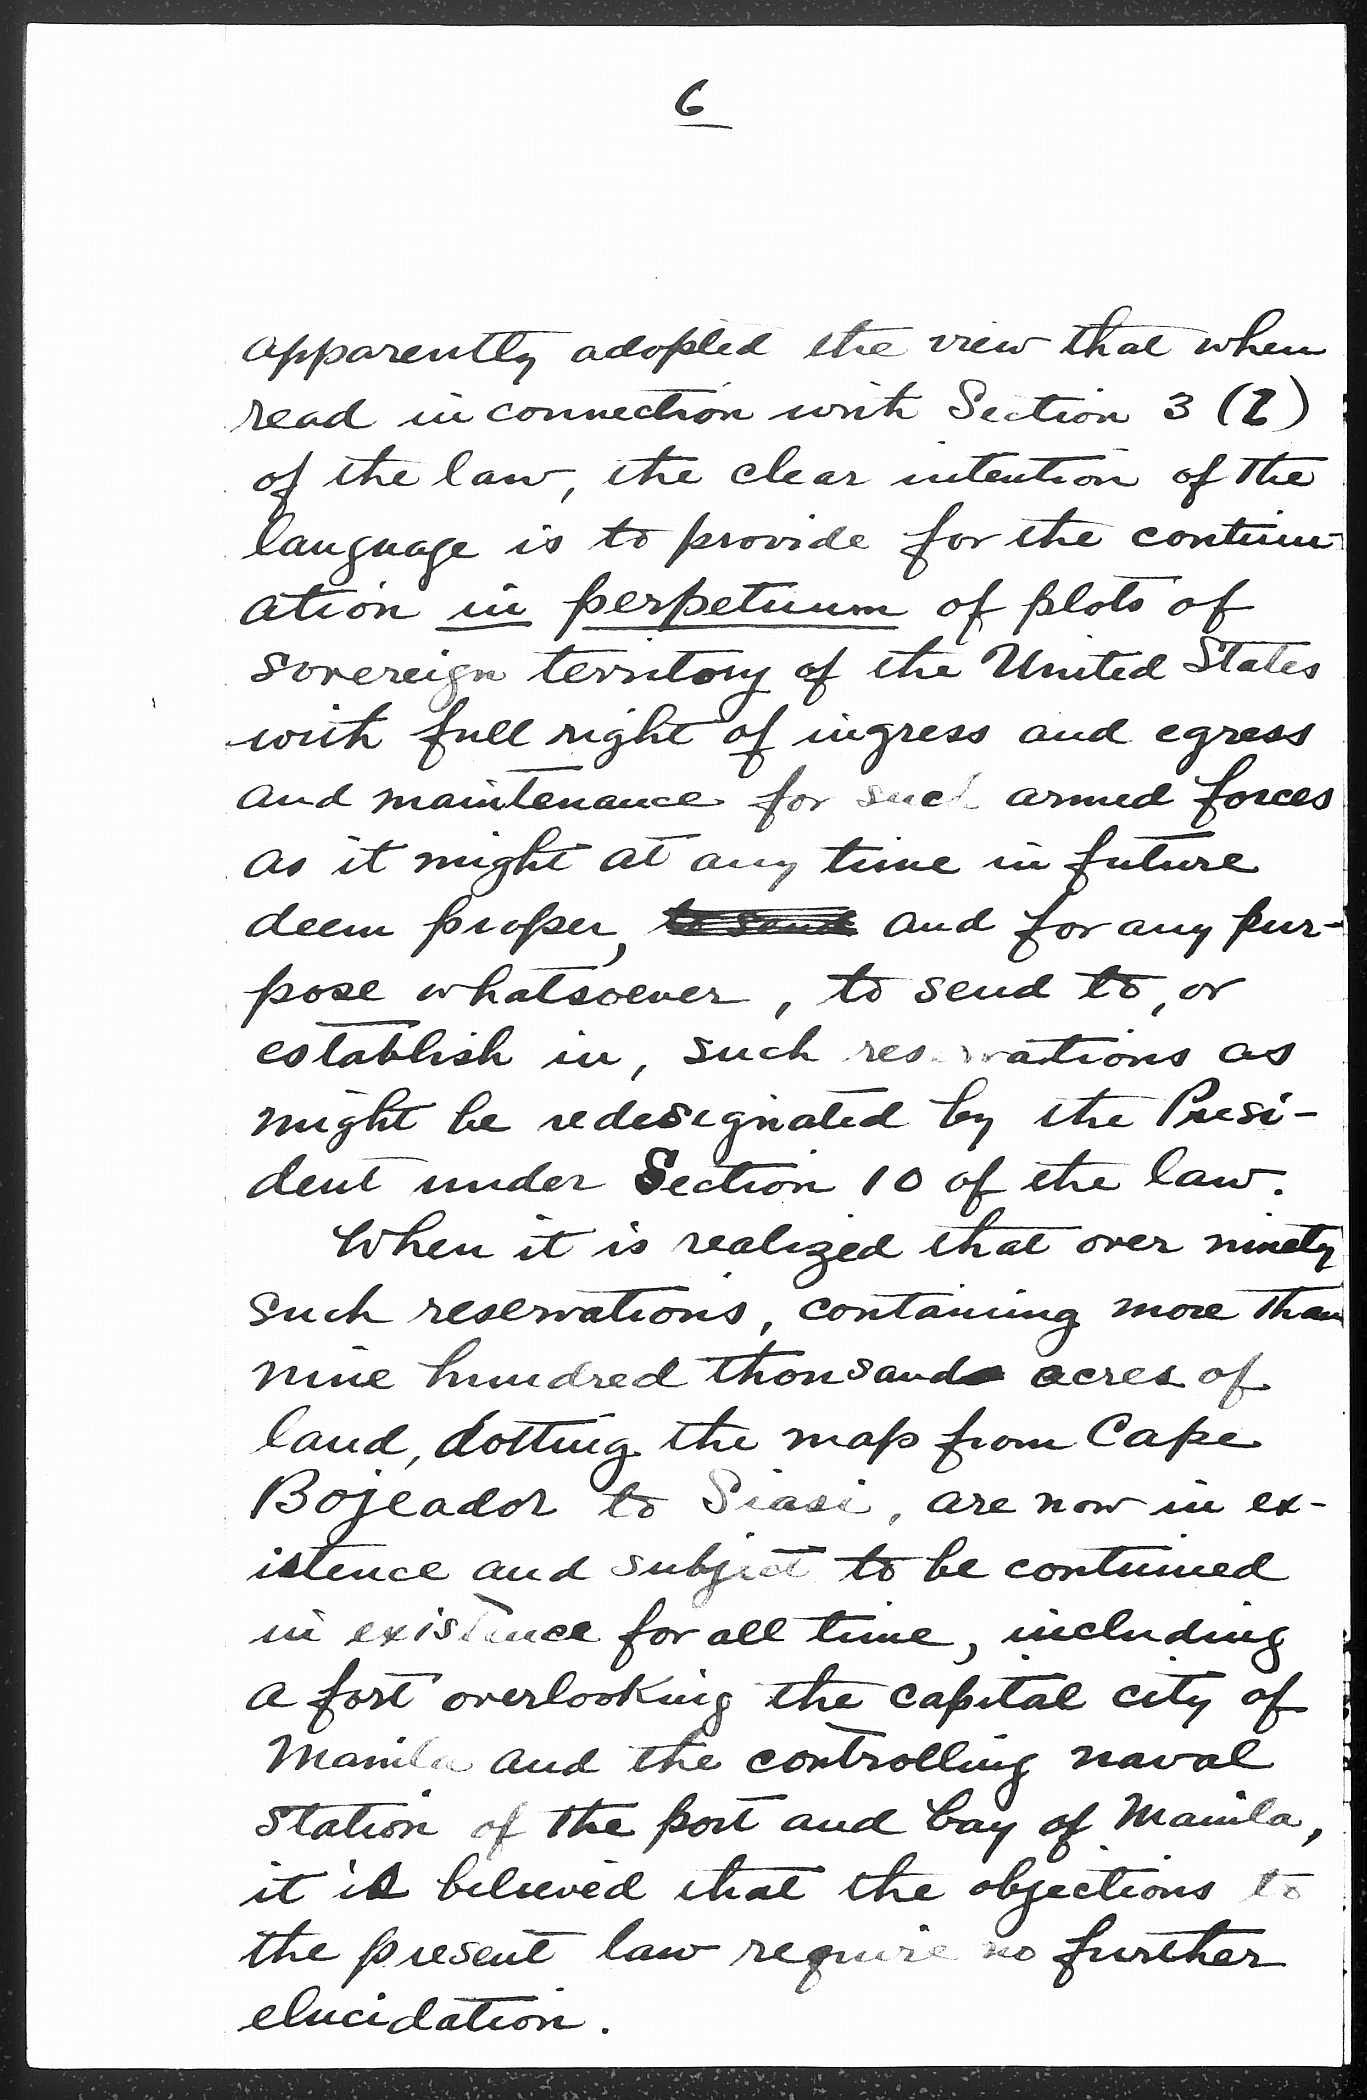 6
apparently adopted the view that when
read in connection with Section 3 (l)
of the law, the clear intention of the
language is to provide for the continu-
ation in perpetuum of plots of
sovereign territory of the United States
with full right of ingress and egress
and maintenance for such armed forces
as it might at any time in future
deem proper, to send and for any pur-
pose whatsoever, to send to, or
establish in, such reservations as
might be redesignated by the Presi-
dent under Section 10 of the law.
When it is realized that over ninety
such reservations, containing more than
nine hundred thousand acres of
land, dotting the map from Cape
Bojeador to Siasi, are now in ex-
istence and subject to be continued
in existence for all time, including
a fort overlooking the capital city of
Manila and the controlling naval
station of the port and bay of Manila,
it is believed that the objections to
the present law require no further
elucidation.